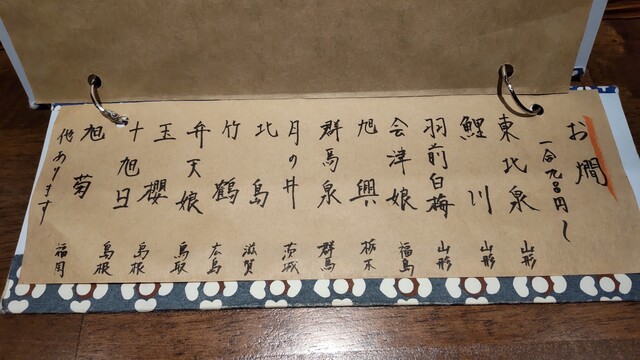 お燗
一合九百円〜
東北泉 山形
鯉川 山形
羽前白梅 山形
会津娘 福島
旭興 栃木
群馬泉 群馬
月の井 茨城
北島 滋賀
竹鶴 広島
弁天娘 鳥取
玉櫻 島根
十旭日 島根
旭菊 福岡
他あります